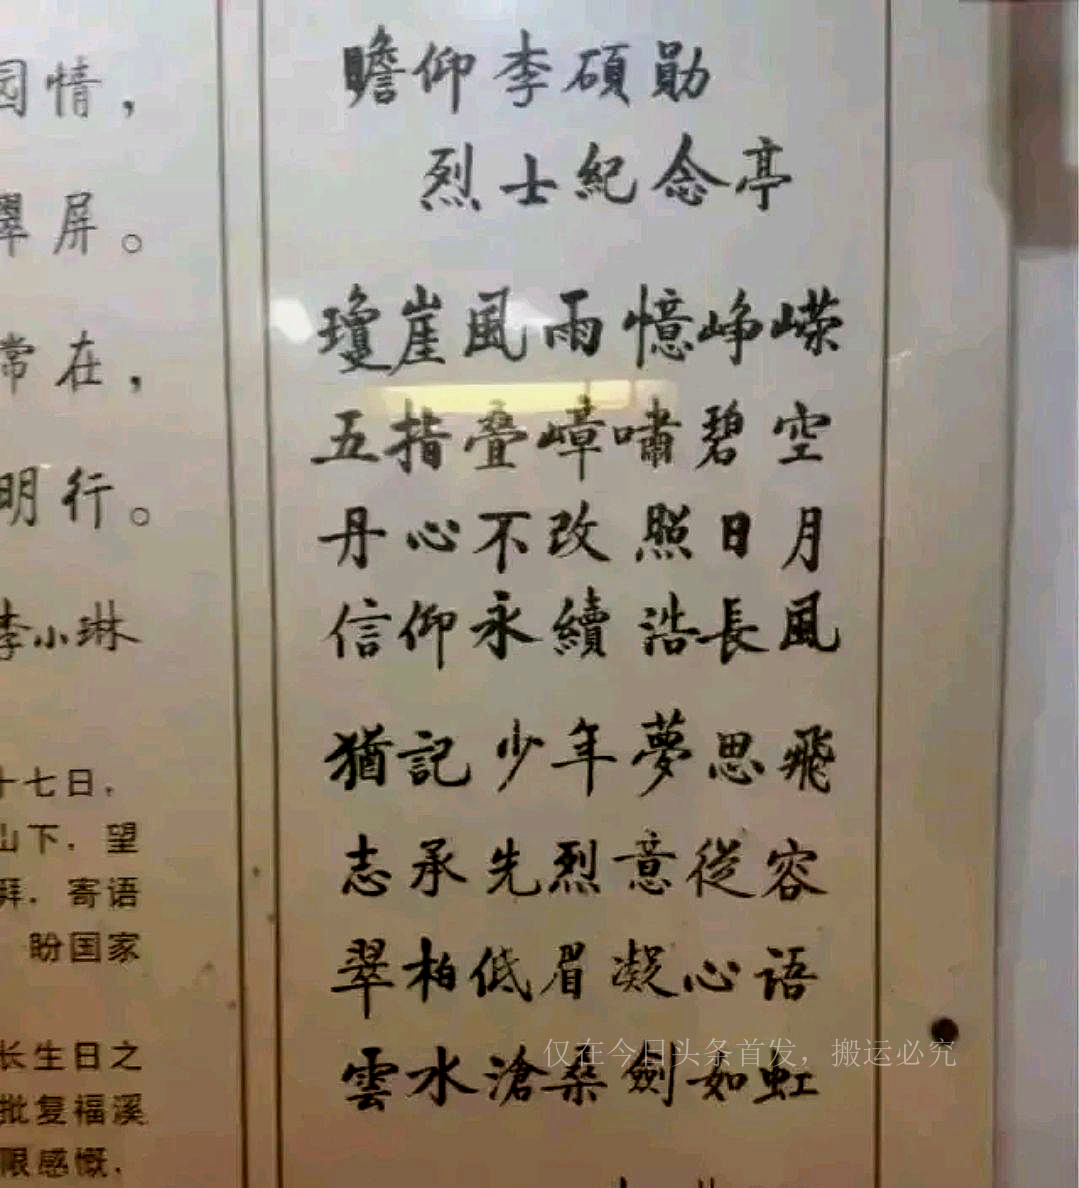 园情，
翠屏。
常在，
明行。
李小琳
十七日，
山下．望
拜．寄语
盼国家
长生日之
批复福溪
限感慨．
瞻仰李硕勋
烈士紀念亭
瓊崖風雨憶峥嵘
五指叠嶂嘯碧空
丹心不改照日月
信仰永續浩長風
猶記少年夢思飛
志承先烈意從容
翠柏低眉凝心语
雲水滄桑劍如虹
仅在今日头条首发，搬运必究